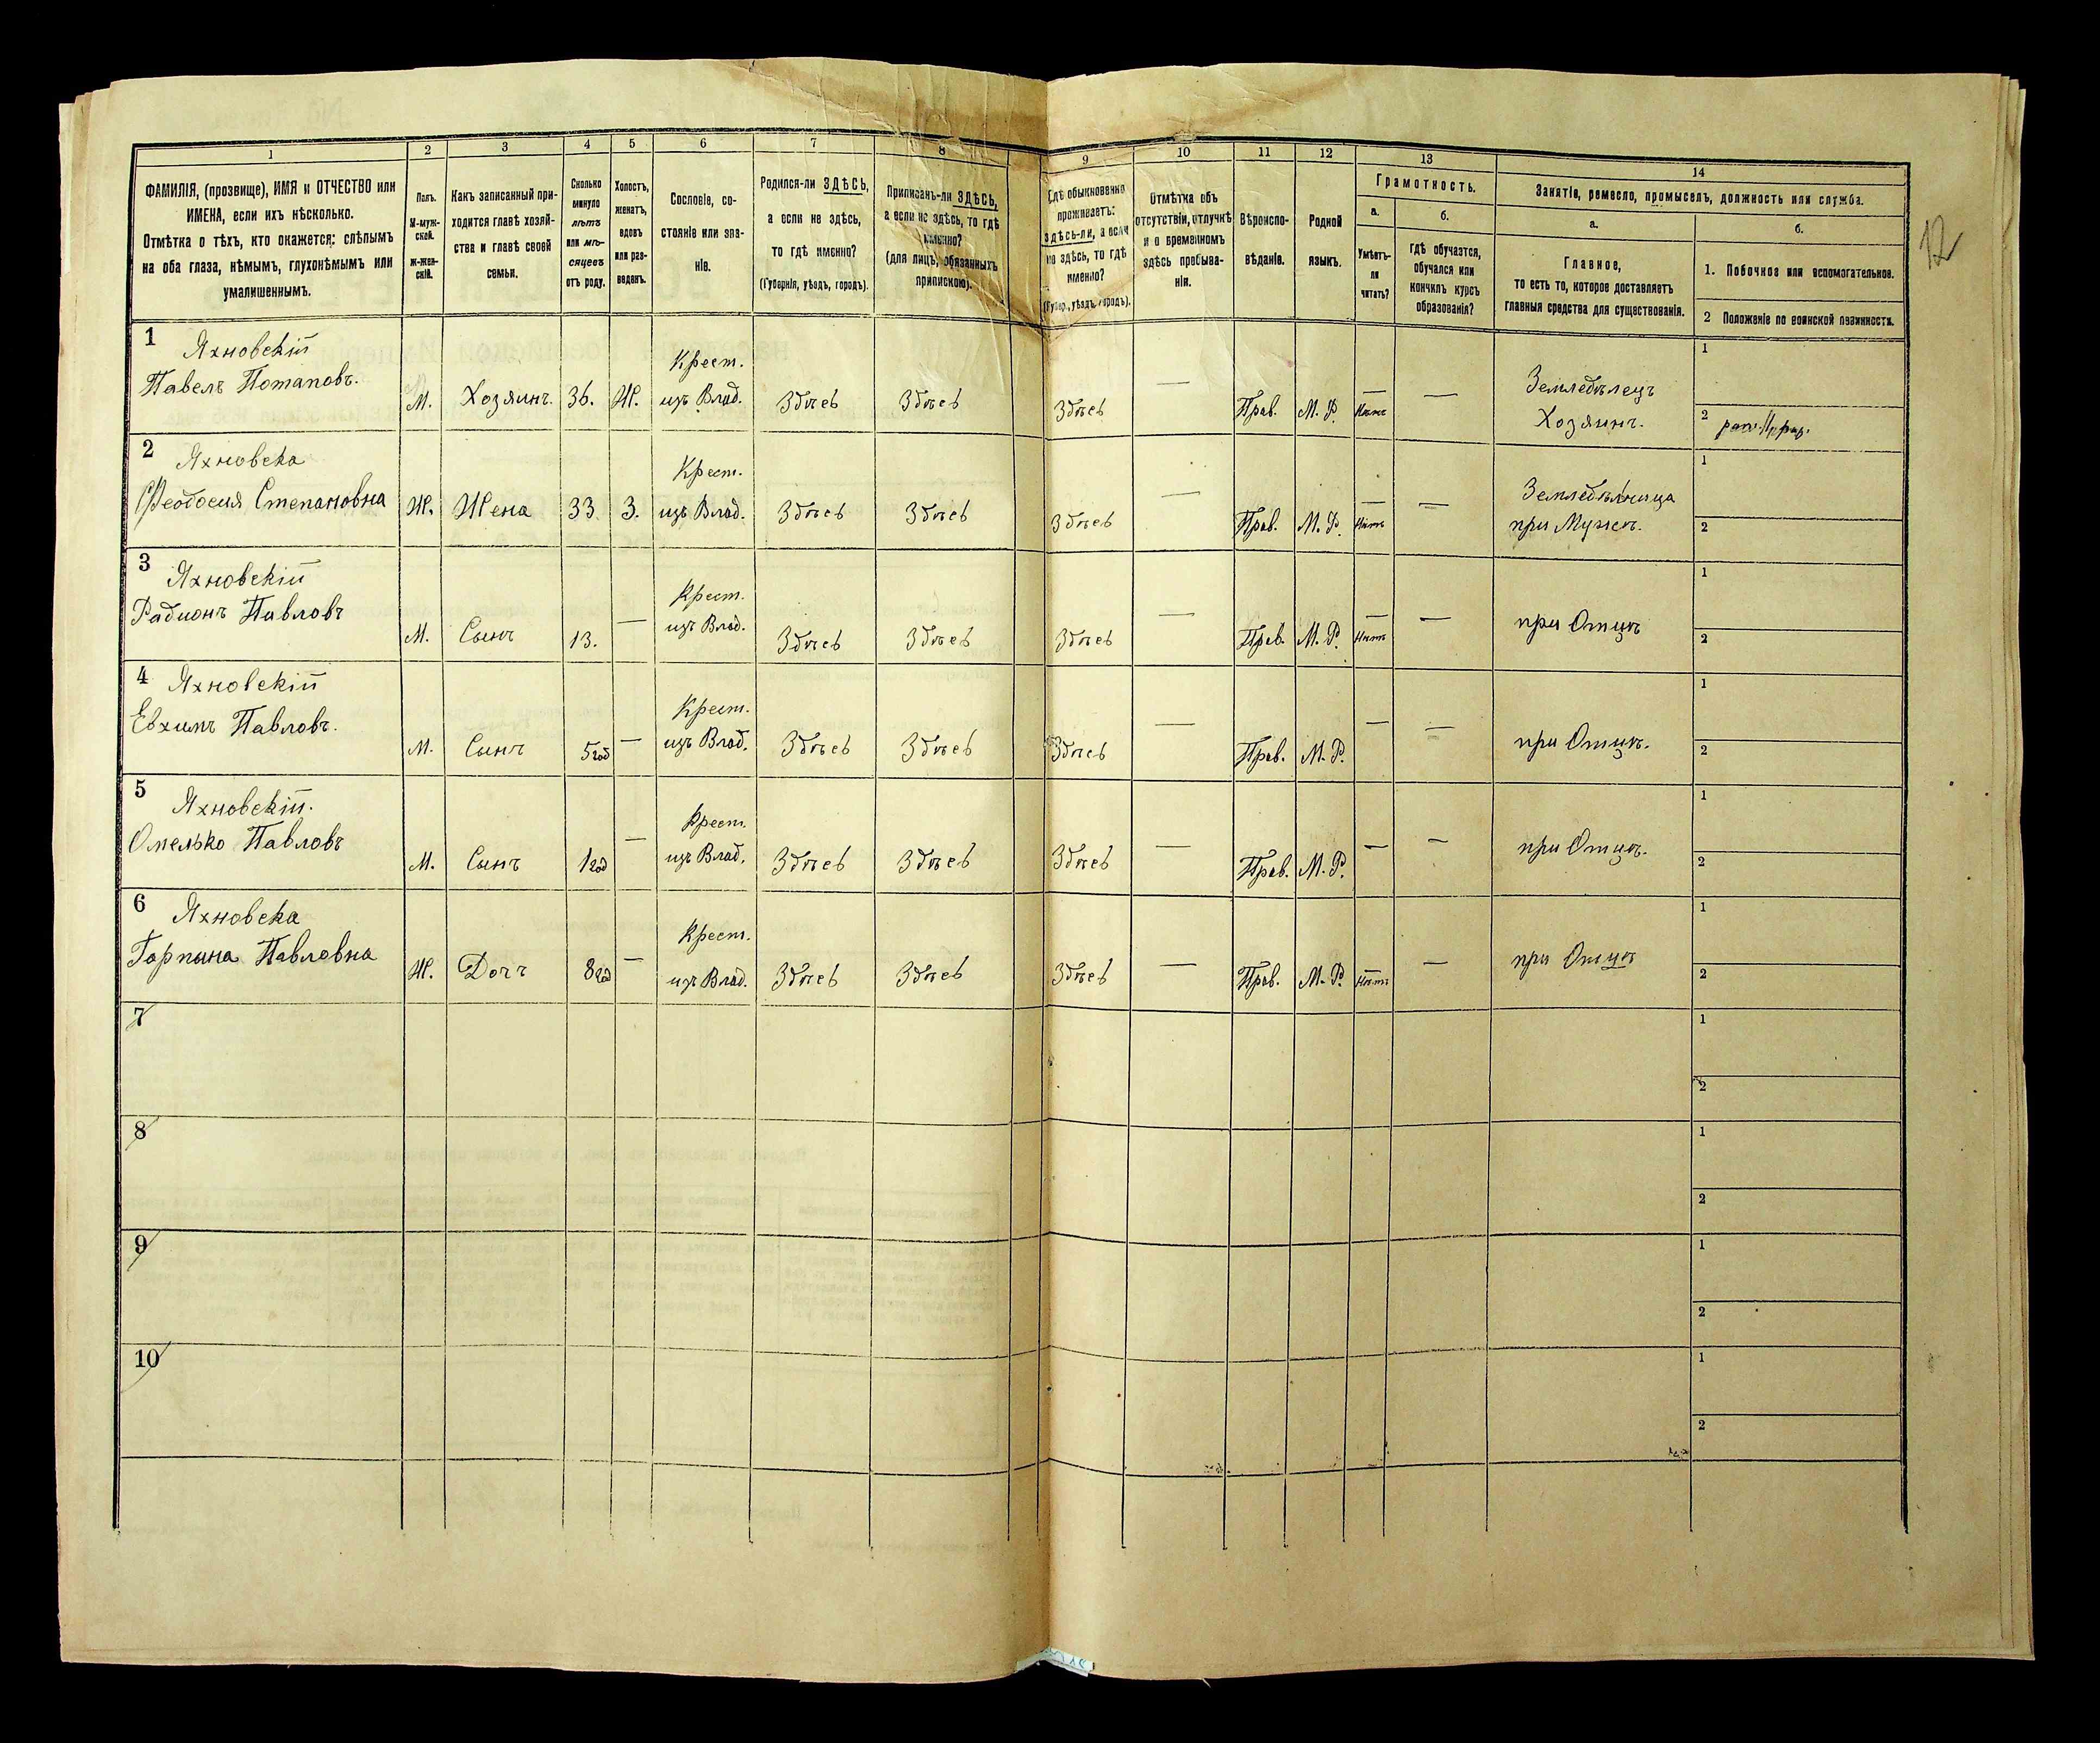 1 2 3 4 5 6 7 8 9 10 11 12 13 14
ФАМИЛІЯ, (прозвище), ИМЯ и ОТЧЕСТВО или
ИМЕНА, если ихъ нѣсколько.
Отмѣтка о тѣхъ, кто окажется: слѣпымъ
на оба глаза, нѣмымъ, глухонѣмымъ или
умалишеннымъ.
Полъ.
М-муж-
ской.
ж-жен-
скій.
Какъ записанный при-
ходится главѣ хозяй-
ства и главѣ своей
семьи.
Сколько
минуло
лѣтъ
или мѣ-
сяцевъ
отъ роду.
Холостъ,
женатъ,
вдовъ
или раз-
веденъ.
Сословіе, со-
стояніе или зва-
ніе.
Родился-ли ЗДѢСЬ,
а если не здѣсь,
то гдѣ именно?
(Губернія, уѣздъ, городъ).
Приписанъ-ли ЗДѢСЬ,
а если не здѣсь, то гдѣ
именно?
(для лицъ, обязанныхъ
припискою).
Гдѣ обыкновенно
проживаетъ:
здѣсь-ли, а если
не здѣсь, то гдѣ
именно?
(Губер., уѣздъ, городъ).
Отмѣтка объ
отсутствіи, отлучкѣ
и о временномъ
здѣсь пребыва-
ніи.
Вѣроиспо-
вѣданіе.
Родной
языкъ.
Грамотность.
а.
Умѣетъ-
ли
читать?
б.
гдѣ обучается,
обучался или
кончилъ курсъ
образованія?
Занятіе, ремесло, промыселъ, должность или служба.
а.
Главное,
то есть то, которое доставляетъ
главныя средства для существованія.
б.
1. Побочное или вспомогательное.
2 Положеніе по воинской повинности.
12
1 Яхновскій
Павелъ Потаповъ.
М. Хозяинъ. 36. Ж.
Крест.
изъ Влад.
Здѣсь Здѣсь Здѣсь — Прав. М. Р. — Нѣтъ —
Земледѣлецъ
Хозяинъ.
1
2
2 Яхновска
Феодосия Степановна
Ж. Жена 33 З.
Крест.
изъ Влад.
Здѣсь Здѣсь Здѣсь — Прав. М. Р. — Нѣтъ —
Земледѣлица
при Мужѣ.
1
2
3 Яхновскій
Радионъ Павловъ
М. Сынъ 13. —
Крест.
изъ Влад.
Здѣсь Здѣсь Здѣсь — Прав. М. Р. — Нѣтъ —
при Отцѣ
1
2
4 Яхновскій
Евхимъ Павловъ.
М. Сынъ 5 год —
Крест.
изъ Влад.
Здѣсь Здѣсь Здѣсь — Прав. М. Р. — —
при Отцѣ.
1
2
5 Яхновскій.
Омелько Павловъ
М. Сынъ 1 год —
Крест.
изъ Влад.
Здѣсь Здѣсь Здѣсь — Прав. М. Р. — —
при Отцѣ.
1
2
6 Яхновска
Горпына Павловна
Ж. Дочъ 8 год —
Крест.
изъ Влад.
Здѣсь Здѣсь Здѣсь — Прав. М. Р. — Нѣтъ —
при Отцѣ
1
2
7
1
2
8
1
2
9
1
2
10
1
2